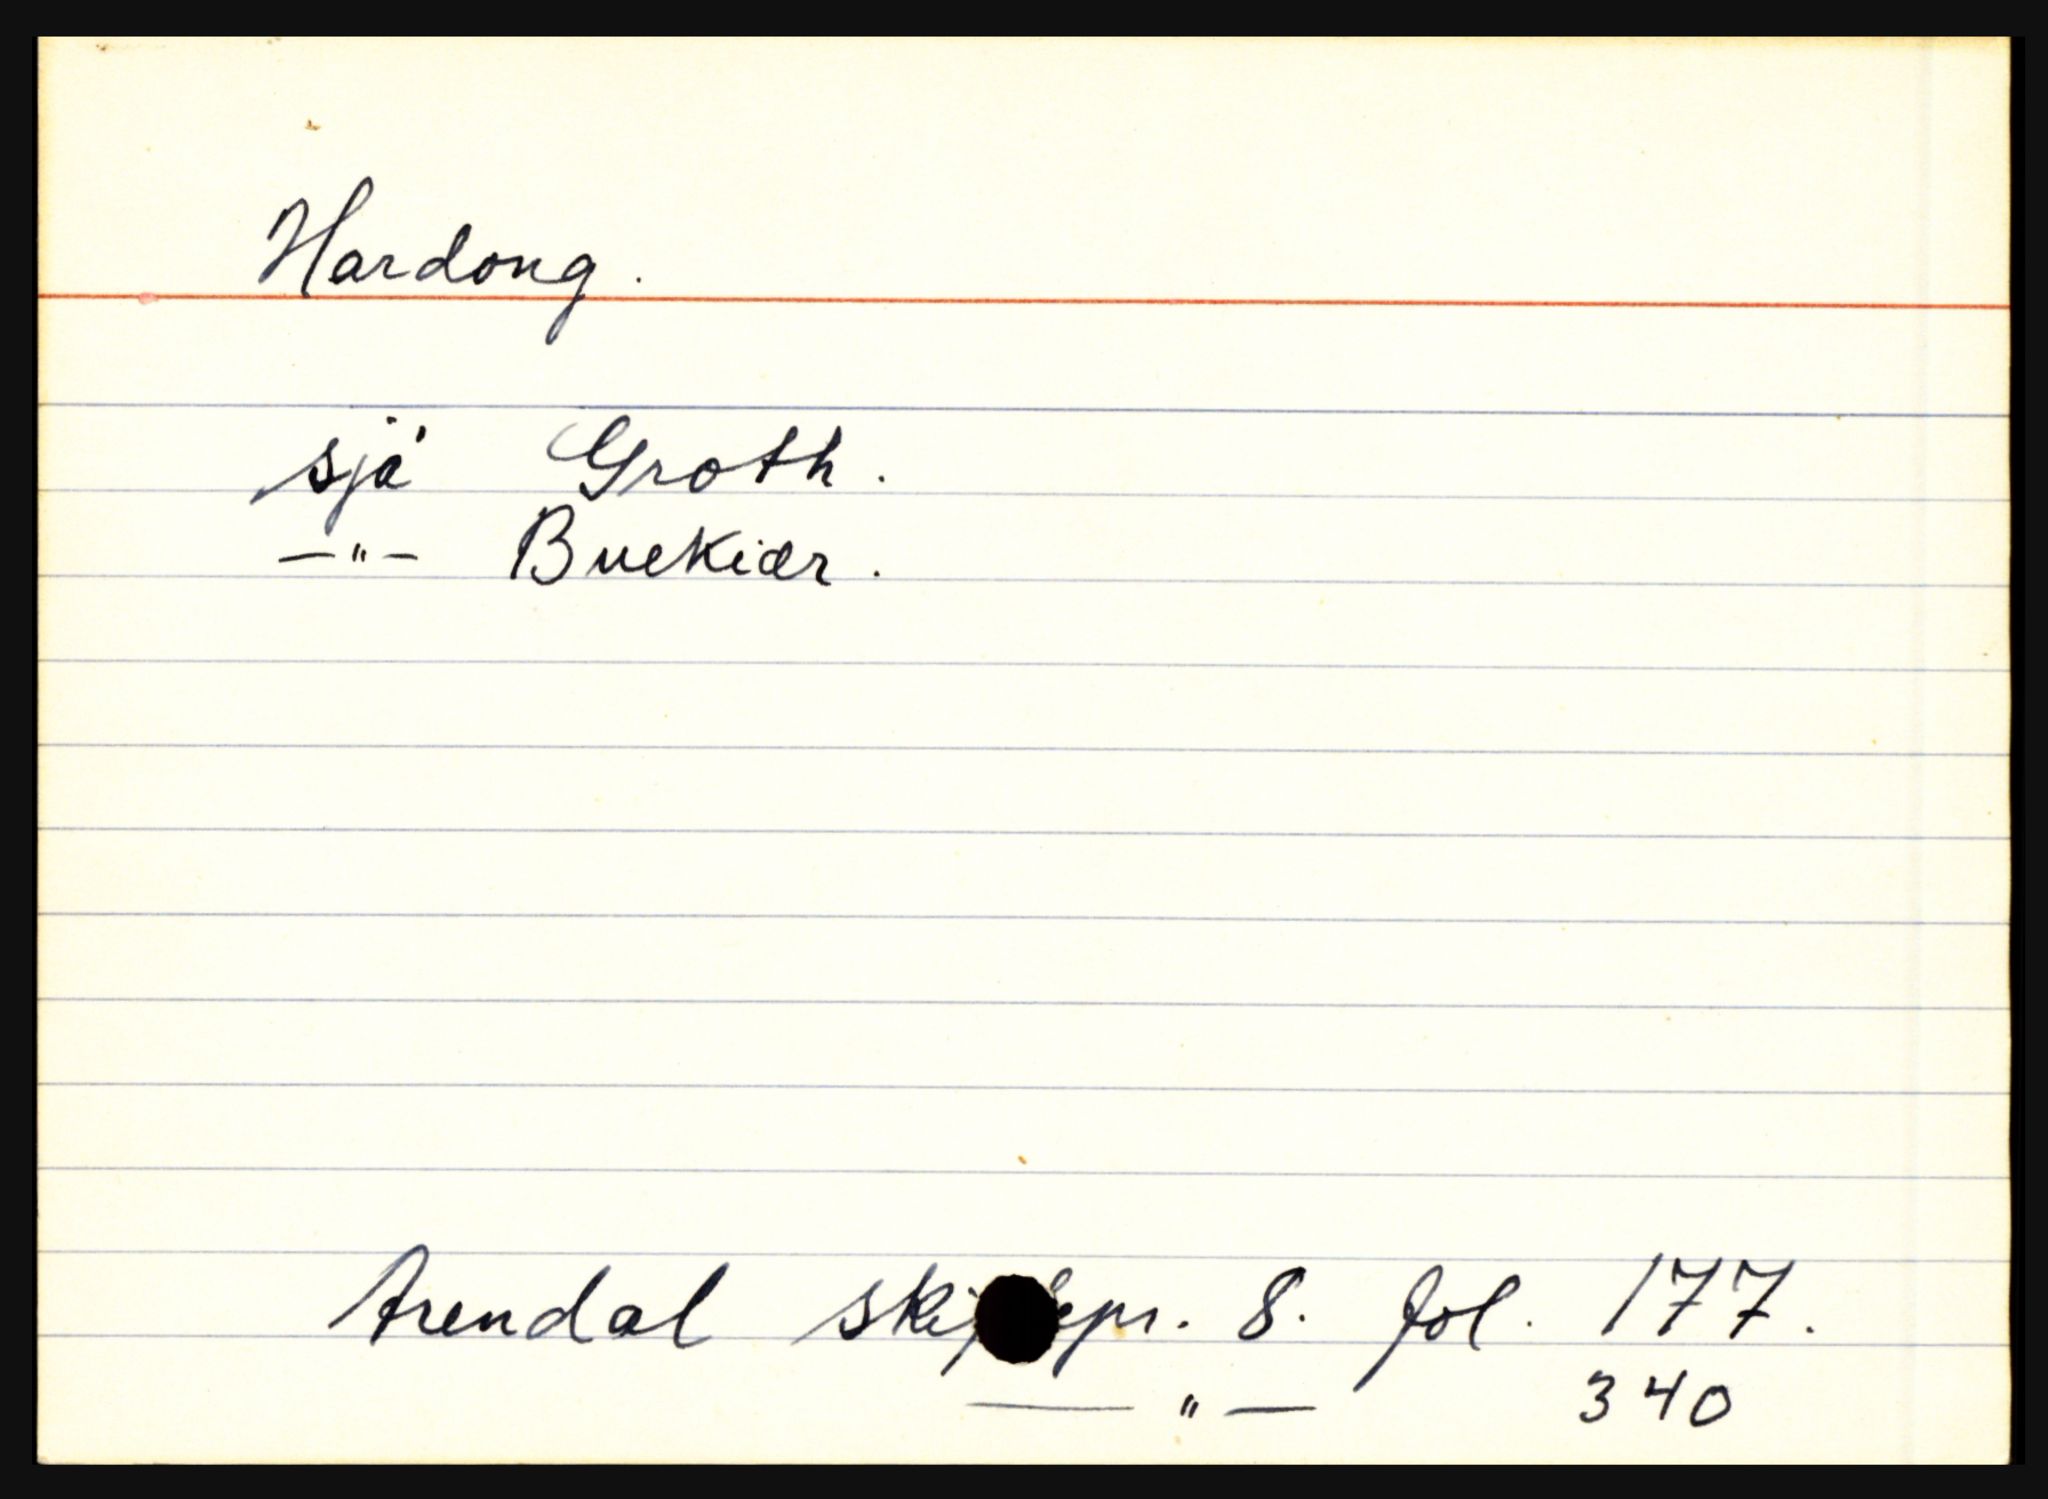 Hardong.
sjå Groth.
—"— Buekiær.
Arendal skiftepr. 8. fol. 177.
—"— 340